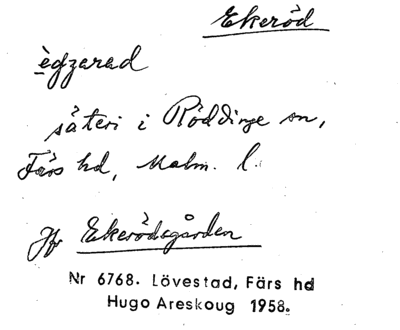 Ekeröd
ègzerad
säteri i Röddinge sn,
Färs hd, Malm. l.
Jfr Ekerödsgården
Nr 6768. Lövestad, Färs hd
Hugo Areskoug 1958.